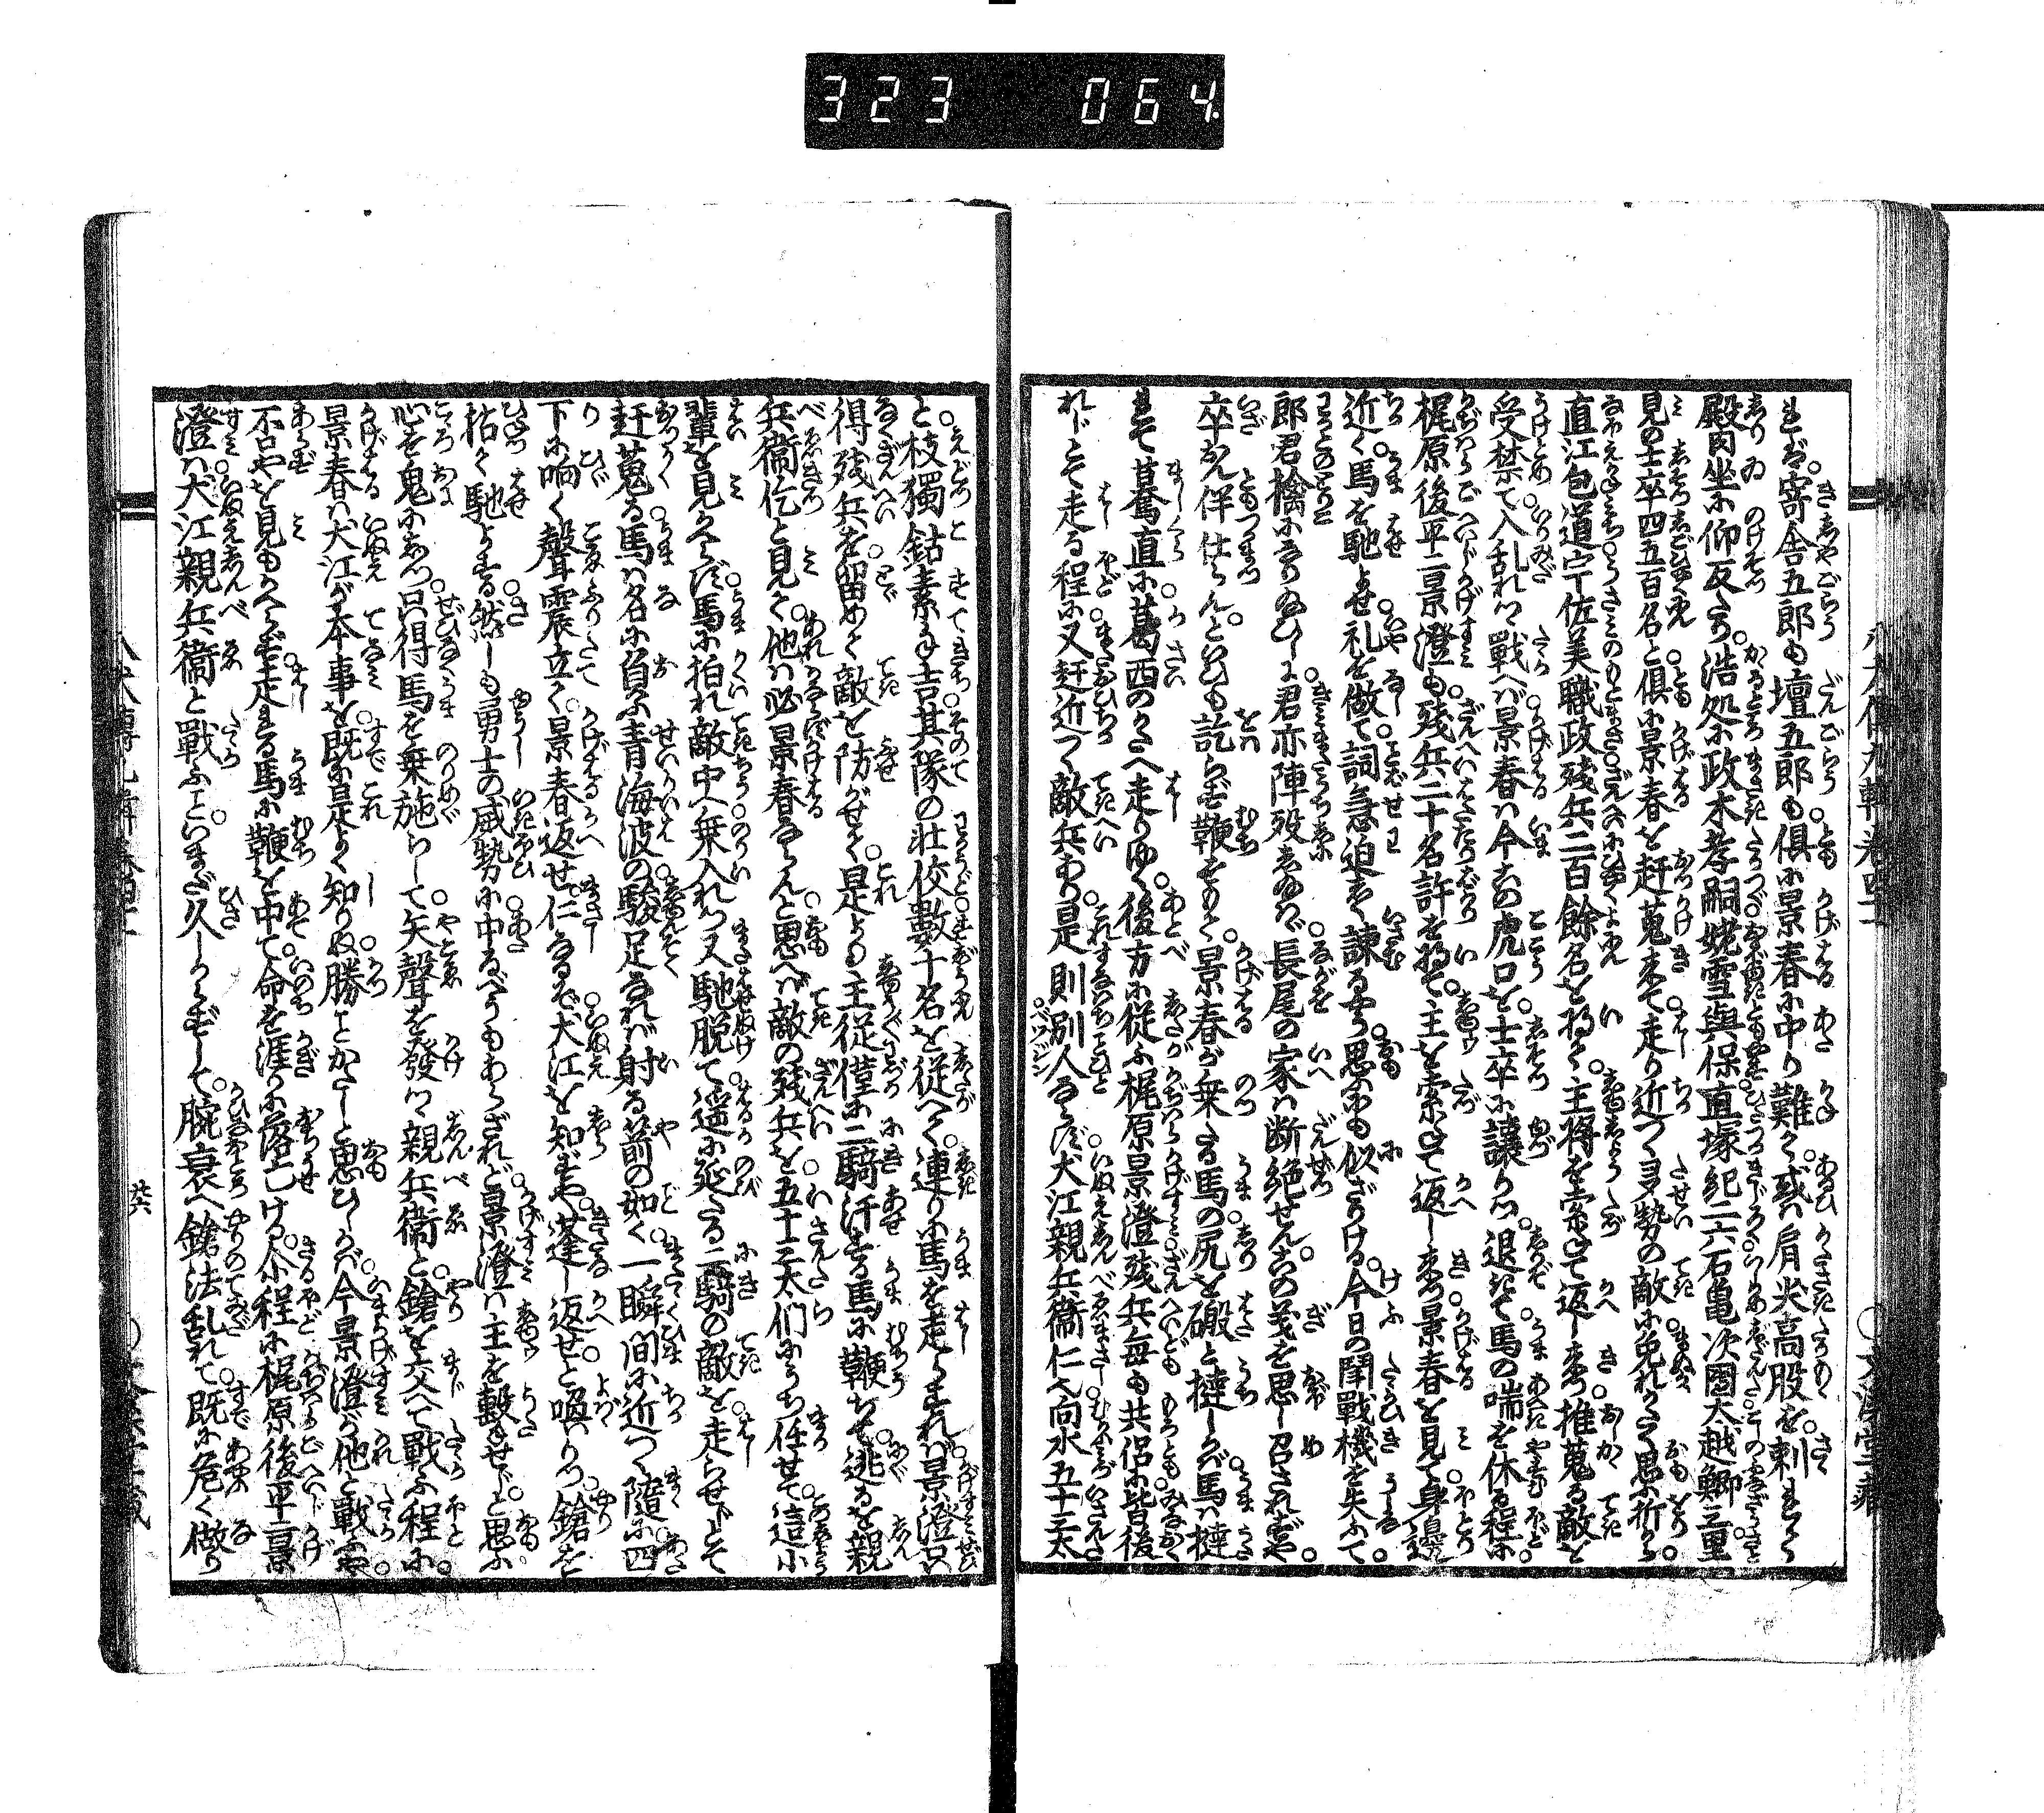 323 064
れバ寄舎五郎も壇五郎も倶に景春に中り難く或ハ肩尖高股を刺れて
殿肉坐に仰反たり浩処に政木孝嗣姥雪與保直塚紀二六石亀次團太越鄉三里
見の士卒四五百名と倶に景春を赶蒐来て走り近つく多勢の敵に免れかたく思ふ折から
直江包道宇佐美職政残兵二百餘名を将て主将を索ねて返し来つ推蒐る敵を
受禁て入乱れつゝ戦へバ景春ハ今この虎口を士卒に譲りつ退きて馬の喘を休る程に
梶原後平二景澄も残兵二十名許を将て主を索ねて返し来つ景春を見て身邊
近く馬を馳よせ礼を做て詞急迫しく諫るやう思ふにも似ざりける今日の闘戦機を失ふて
郎君擒になり給ひしに君亦陣歿し給ハゞ長尾の家ハ断絶せんこの義を思し召されずや
卒かん伴仕らんといひも訖らず鞭をもて景春が乗たる馬の尻を磤と撻しかバ馬ハ撻
れて驀直に葛西のかたへ走りゆく後方に従ふ梶原景澄残兵毎も共侶に皆後
れじとて走る程に又赶近つく敵兵あり是則別人ならず犬江親兵衞仁向水五十三太
と枝獨鈷素手吉其隊の壮佼數十名を従へて連りに馬を走らすれバ景澄只
得残兵を留めて敵を防がせて是よりも主従僅に二騎汗する馬に鞭ちて逃るを親
兵衞佶と見て他ハ必景春ならんと思へバ敵の残兵を五十三太们にうち任せて這小
輩を見かへらず馬に拍れ敵中へ乗入れつ又馳脱て遥に延たる二騎の敵を走らせじとて
赶蒐る馬ハ名に負ふ青海波の駿足なれバ射る箭の如く一瞬間に近つく隨に四
下に响く聲震立て景春返せ仁なるぞ犬江を知ずや蓬し返せと喚りつゝ鎗を
拈て馳よする然しも勇士の威勢に中るべうもあらざれど景澄ハ主を轂せじと思ふ
心を鬼にしつ只得馬を乗旋らして矢聲を發つゝ親兵衞と鎗を交へて戦ふ程に
景春ハ犬江が本事を既に是よく知りぬ勝ことかたしと思ひしかバ今景澄が他と戦ふや
不やを見もかへらず走る馬に鞭を中て命を涯りに落亡ける尒程に梶原後平二景
澄ハ犬江親兵衞と戦ふこといまだ久しからずして腕衰へ鎗法乱れて既に危く做り